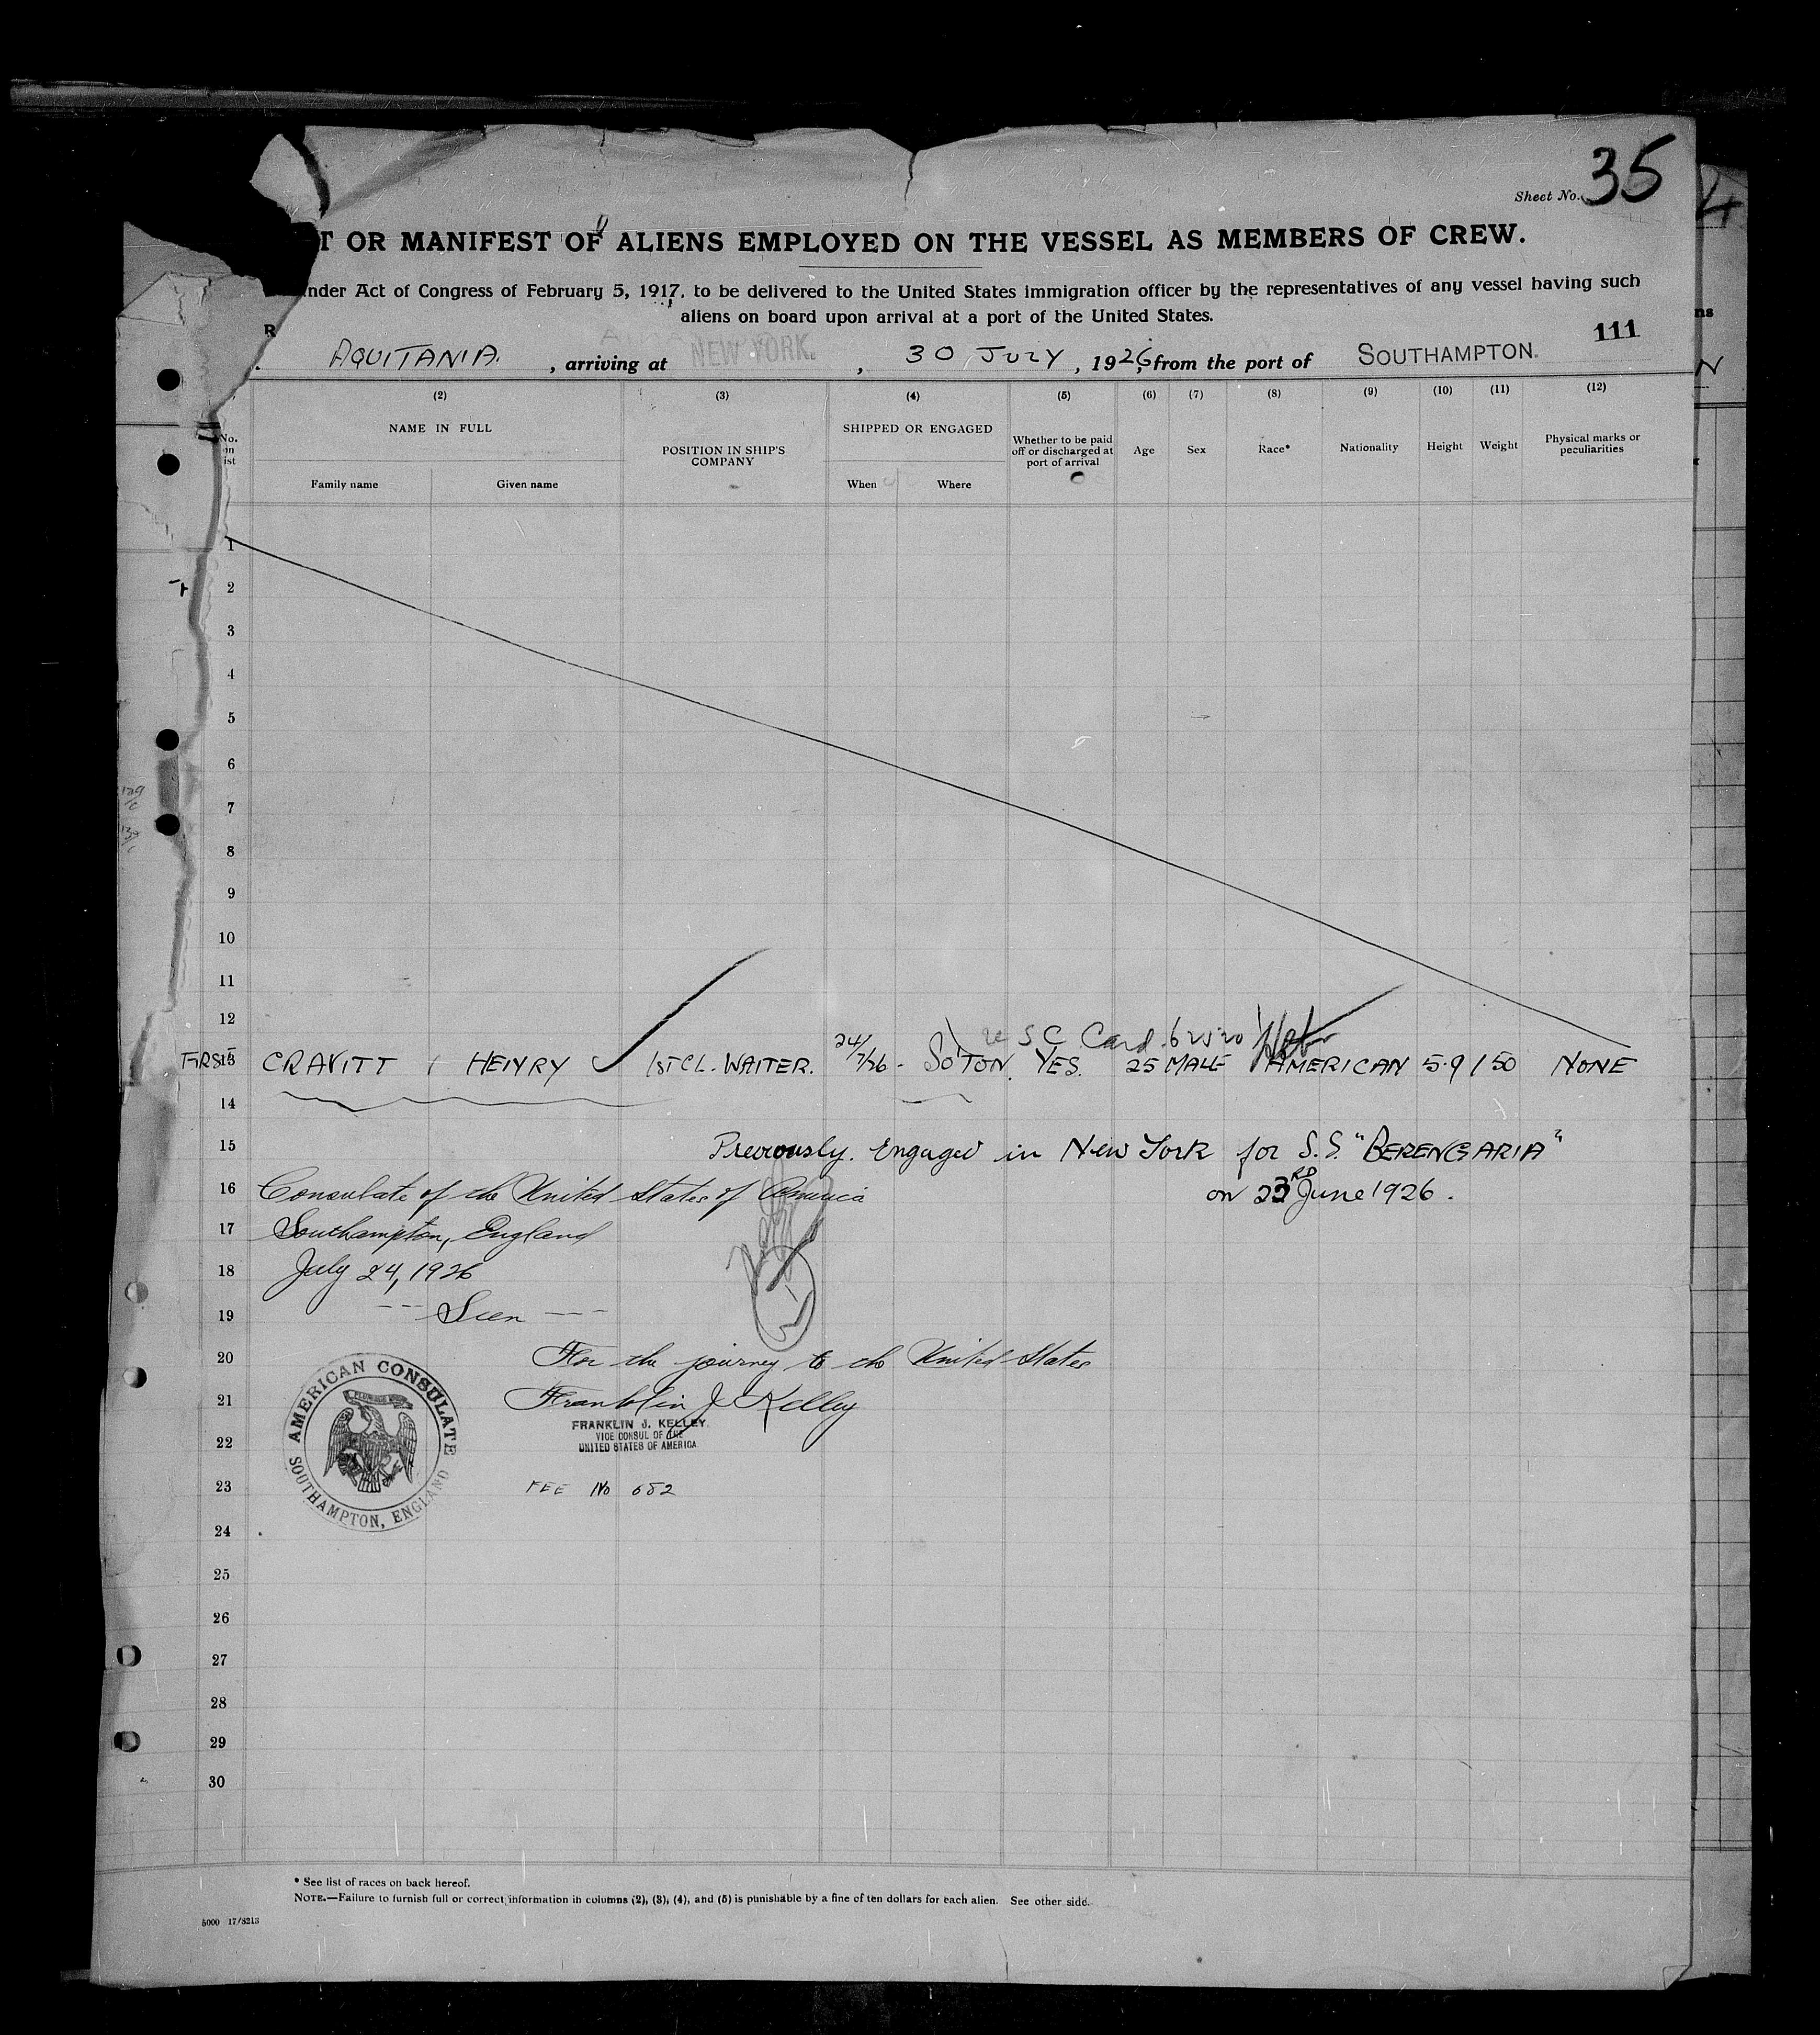 Sheet No. 35
T OR MANIFEST OF ALIENS EMPLOYED ON THE VESSEL AS MEMBERS OF CREW.
nder Act of Congress of February 5, 1917, to be delivered to the United States immigration officer by the representatives of any vessel having such
aliens on board upon arrival at a port of the United States.
111
AQUITANIA. , arriving at NEW YORK. , 30 JULY , 1926, from the port of SOUTHAMPTON.
(2) (3) (4) (5) (6) (7) (8) (9) (10) (11) (12)
No. NAME IN FULL POSITION IN SHIP'S COMPANY SHIPPED OR ENGAGED Whether to be paid off or discharged at port of arrival Age Sex Race* Nationality Height Weight Physical marks or peculiarities
Family name Given name When Where
1
2
3
4
5
6
7
8
9
10
11
12
S C Card
FIRST 13 CRAVITT HENRY 1ST CL. WAITER. 24/7/26 - SO'TON. YES. 25 MALE AMERICAN 5.9 150 NONE
14
15 Previously Engaged in New York for S.S. "BERENGARIA"
16 Consulate of the United States of America on 23RD June 1926.
17 Southampton, England
18 July 24, 1926
19 --- Seen ---
20 For the journey to the United States
21 Franklin J Kelley
FRANKLIN J. KELLEY.
22 VICE CONSUL OF THE
UNITED STATES OF AMERICA
AMERICAN CONSULATE
SOUTHAMPTON, ENGLAND
23 FEE No 682
24
25
26
27
28
29
30
* See list of races on back hereof.
NOTE.—Failure to furnish full or correct information in columns (2), (3), (4), and (5) is punishable by a fine of ten dollars for each alien. See other side.
5000 17/8213